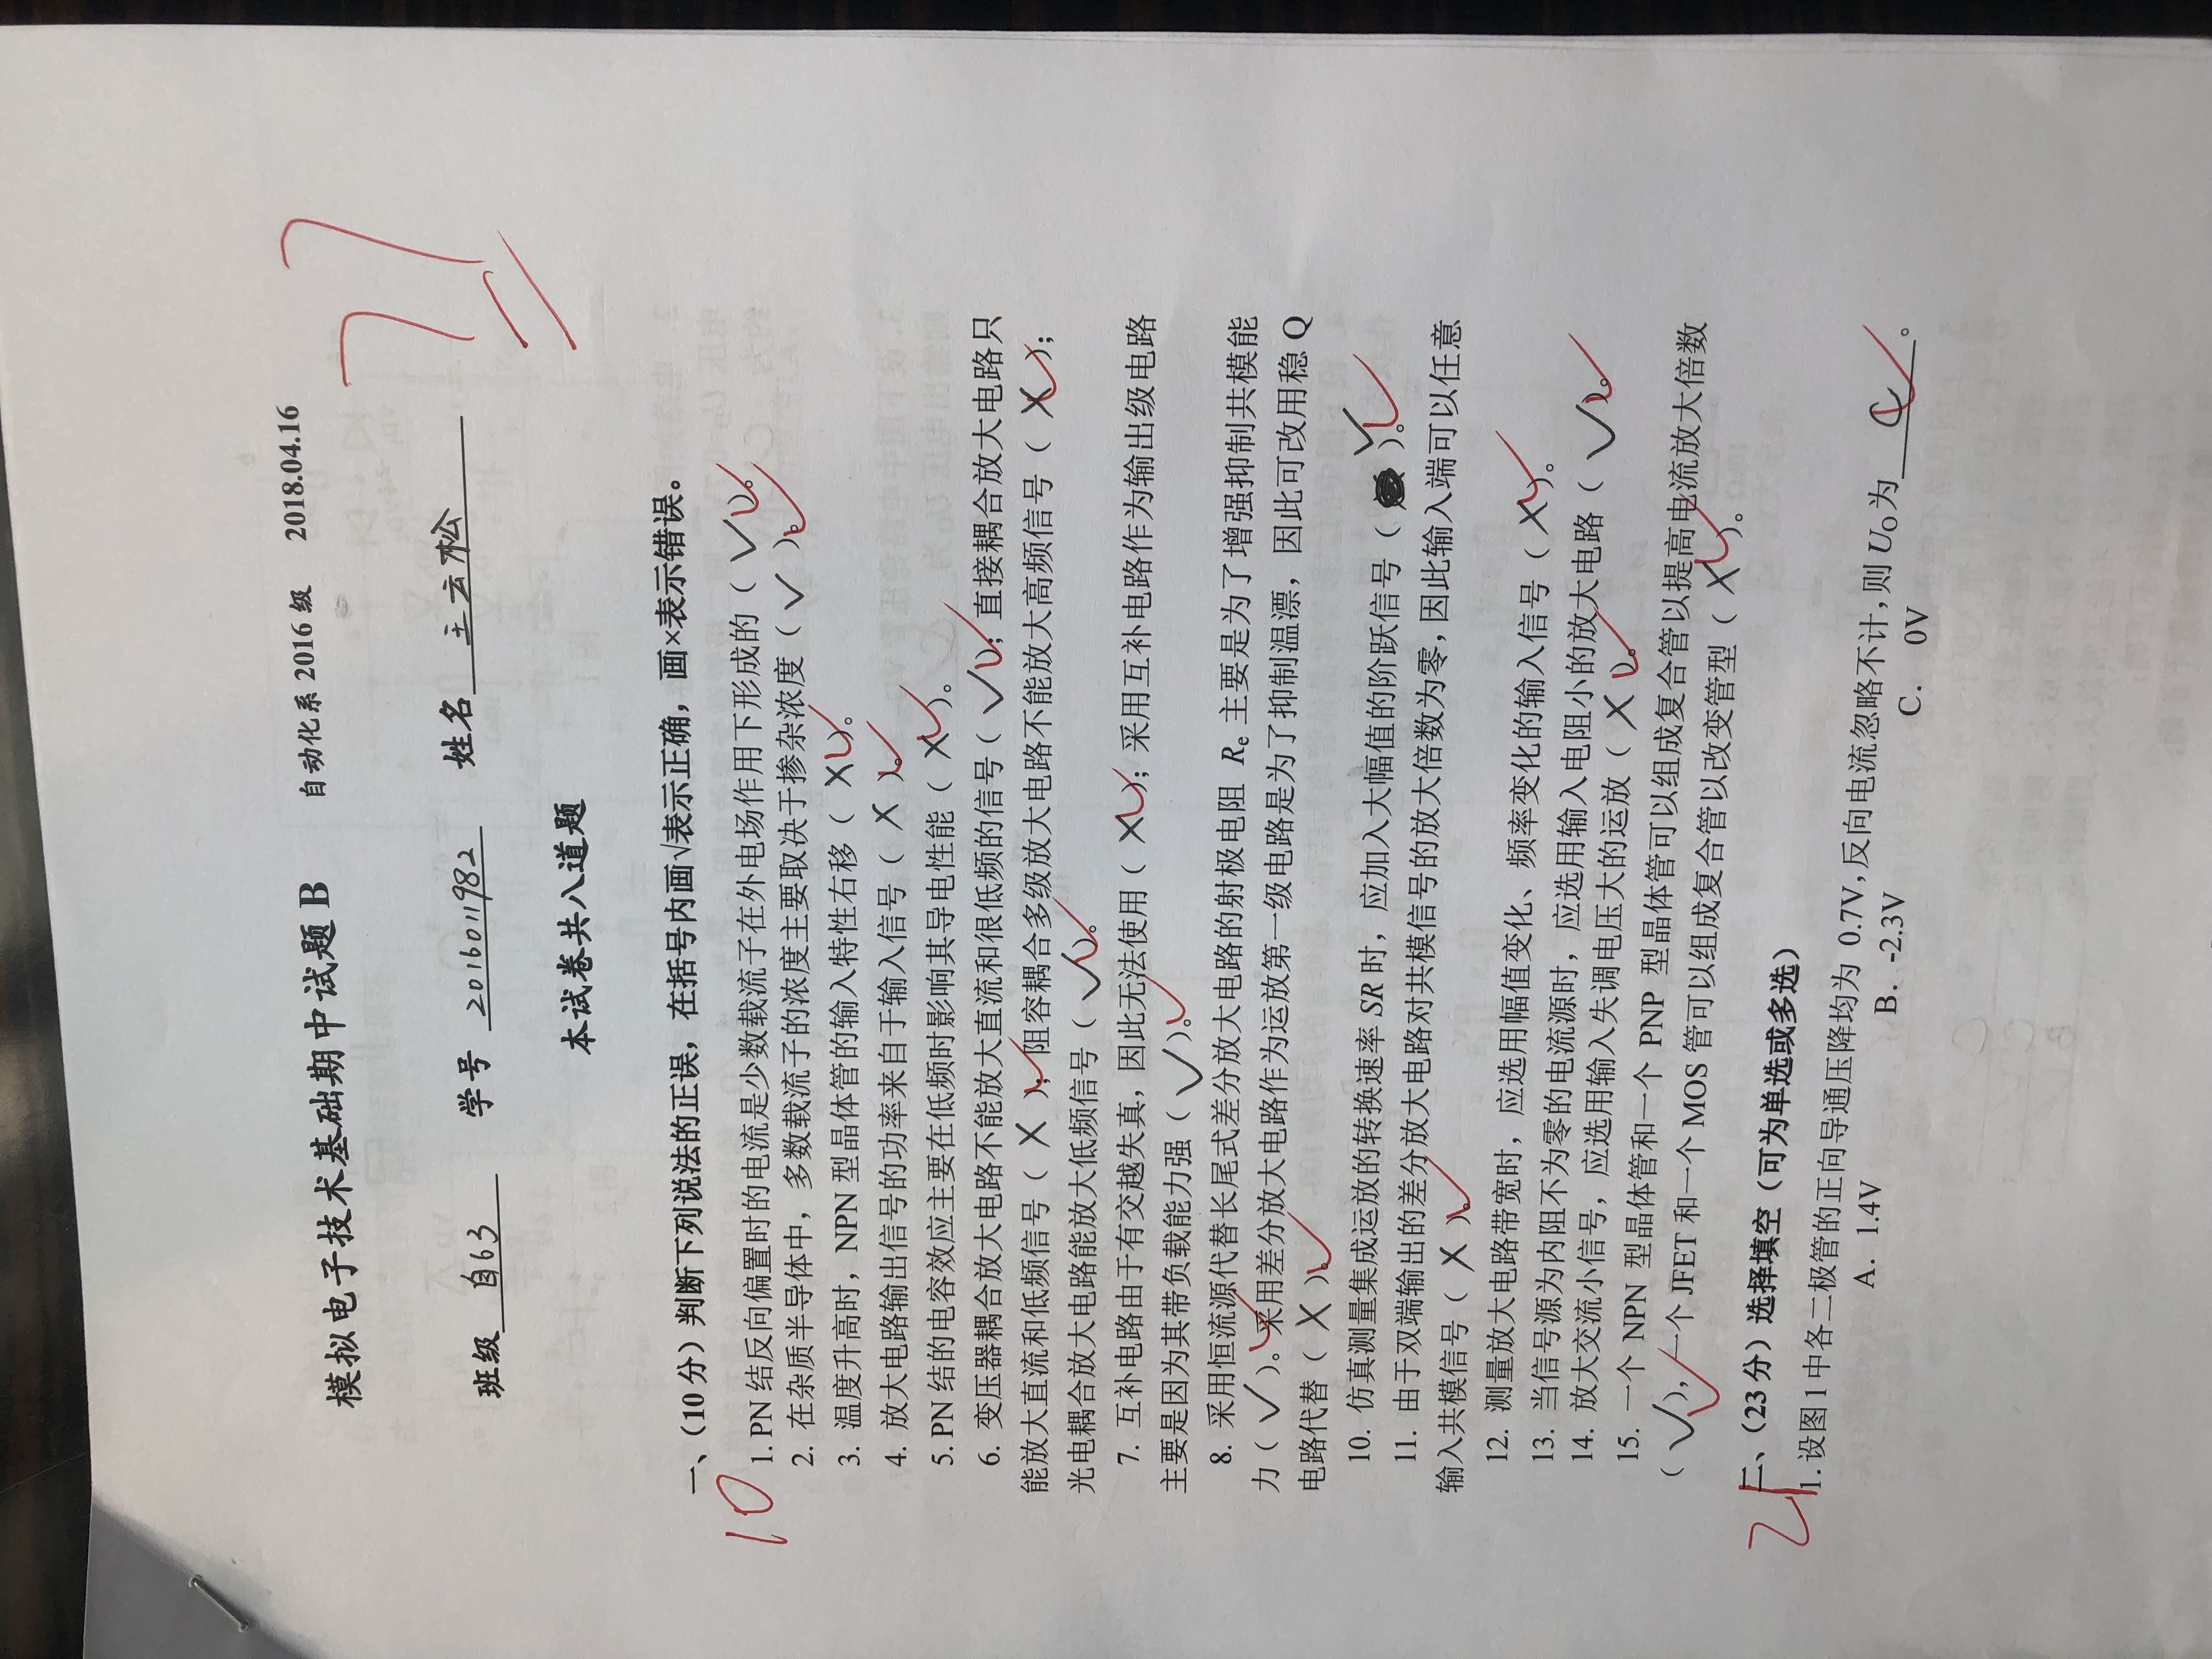 模拟电子技术基础期中试题 B 自动化系 2016 级 2018.04.16
77
班级 自63 学号 2016011982 姓名 王云松
本试卷共八道题
一、（10 分）判断下列说法的正误，在括号内画√表示正确，画×表示错误。
10
1. PN 结反向偏置时的电流是少数载流子在外电场作用下形成的（ √ ）。
2. 在杂质半导体中，多数载流子的浓度主要取决于掺杂浓度（ √ ）。
3. 温度升高时，NPN 型晶体管的输入特性右移（ × ）。
4. 放大电路输出信号的功率来自于输入信号（ × ）。
5. PN 结的电容效应主要在低频时影响其导电性能（ × ）。
6. 变压器耦合放大电路不能放大直流和很低频的信号（ √ ）；直接耦合放大电路只
能放大直流和低频信号（ × ）；阻容耦合多级放大电路不能放大高频信号（ × ）；
光电耦合放大电路能放大低频信号（ √ ）。
7. 互补电路由于有交越失真，因此无法使用（ × ）；采用互补电路作为输出级电路
主要是因为其带负载能力强（ √ ）。
8. 采用恒流源代替长尾式差分放大电路的射极电阻 Re 主要是为了增强抑制共模能
力（ √ ）。采用差分放大电路作为运放第一级电路是为了抑制温漂，因此可改用稳 Q
电路代替（ × ）。
10. 仿真测量集成运放的转换速率 SR 时，应加入大幅值的阶跃信号（ √ ）。
11. 由于双端输出的差分放大电路对共模信号的放大倍数为零，因此输入端可以任意
输入共模信号（ × ）。
12. 测量放大电路带宽时，应选用幅值变化、频率变化的输入信号（ × ）。
13. 当信号源为内阻不为零的电流源时，应选用输入电阻小的放大电路（ √ ）。
14. 放大交流小信号，应选用输入失调电压大的运放（ × ）。
15. 一个 NPN 型晶体管和一个 PNP 型晶体管可以组成复合管以提高电流放大倍数
（ √ ），一个 JFET 和一个 MOS 管可以组成复合管以改变管型（ × ）。
21
二、（23 分）选择填空（可为单选或多选）
1. 设图 1 中各二极管的正向导通压降均为 0.7V，反向电流忽略不计，则 UO 为 C 。
A. 1.4V B. -2.3V C. 0V